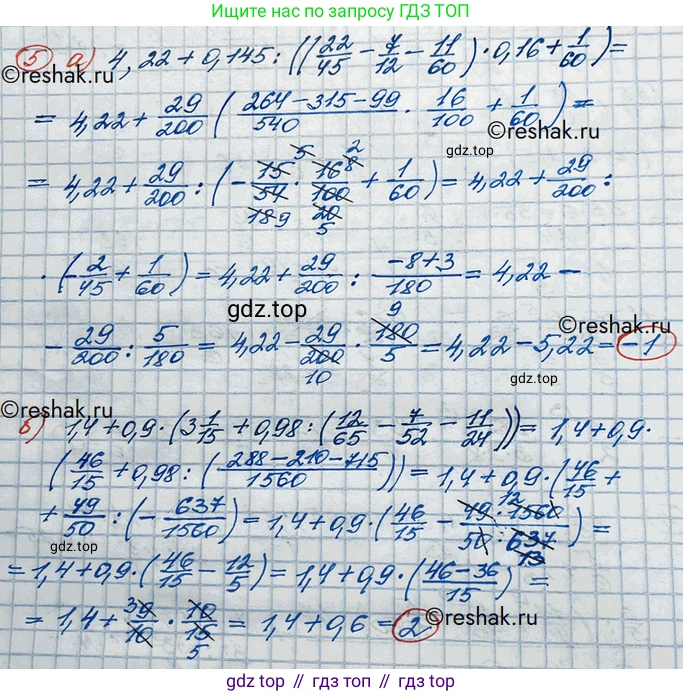 Ищите нас по запросу ГДЗ ТОП
5 а) 4,22+0,145:((22/45-7/12-11/60)·0,16+1/60)=
©reshak.ru
=4,22+29/200((264-315-99)/540·16/100+1/60)=
gdz.top
©reshak.ru
5 2
=4,22+29/200:(-15/54·16/100+1/60)=4,22+29/200:
8
189 20
5
·(-2/45+1/60)=4,22+29/200:(-8+3)/180=4,22-
gdz.top
©reshak.ru
9
-29/200:5/180=4,22-29/200·180/5=4,22-5,22=-1
10
gdz.top
©reshak.ru
б) 1,4+0,9·(3 1/15+0,98:(12/65-7/52-11/24))=1,4+0,9·
(46/15+0,98:((288-210-715)/1560))=1,4+0,9·(46/15+
12
+49/50:(-637/1560)=1,4+0,9·(46/15-49·1560/50:637)=
13
=1,4+0,9·(46/15-12/5)=1,4+0,9·((46-36)/15)=
=1,4+39/10·10/15=1,4+0,6=2
5
©reshak.ru
gdz.top // гдз топ // gdz.top